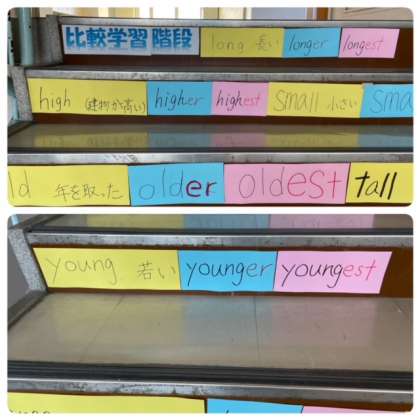 比較学習階段 long 長い longer longest
high (建物が高い) higher highest small 小さい sma
ld 年を取った older oldest tall
young 若い younger youngest